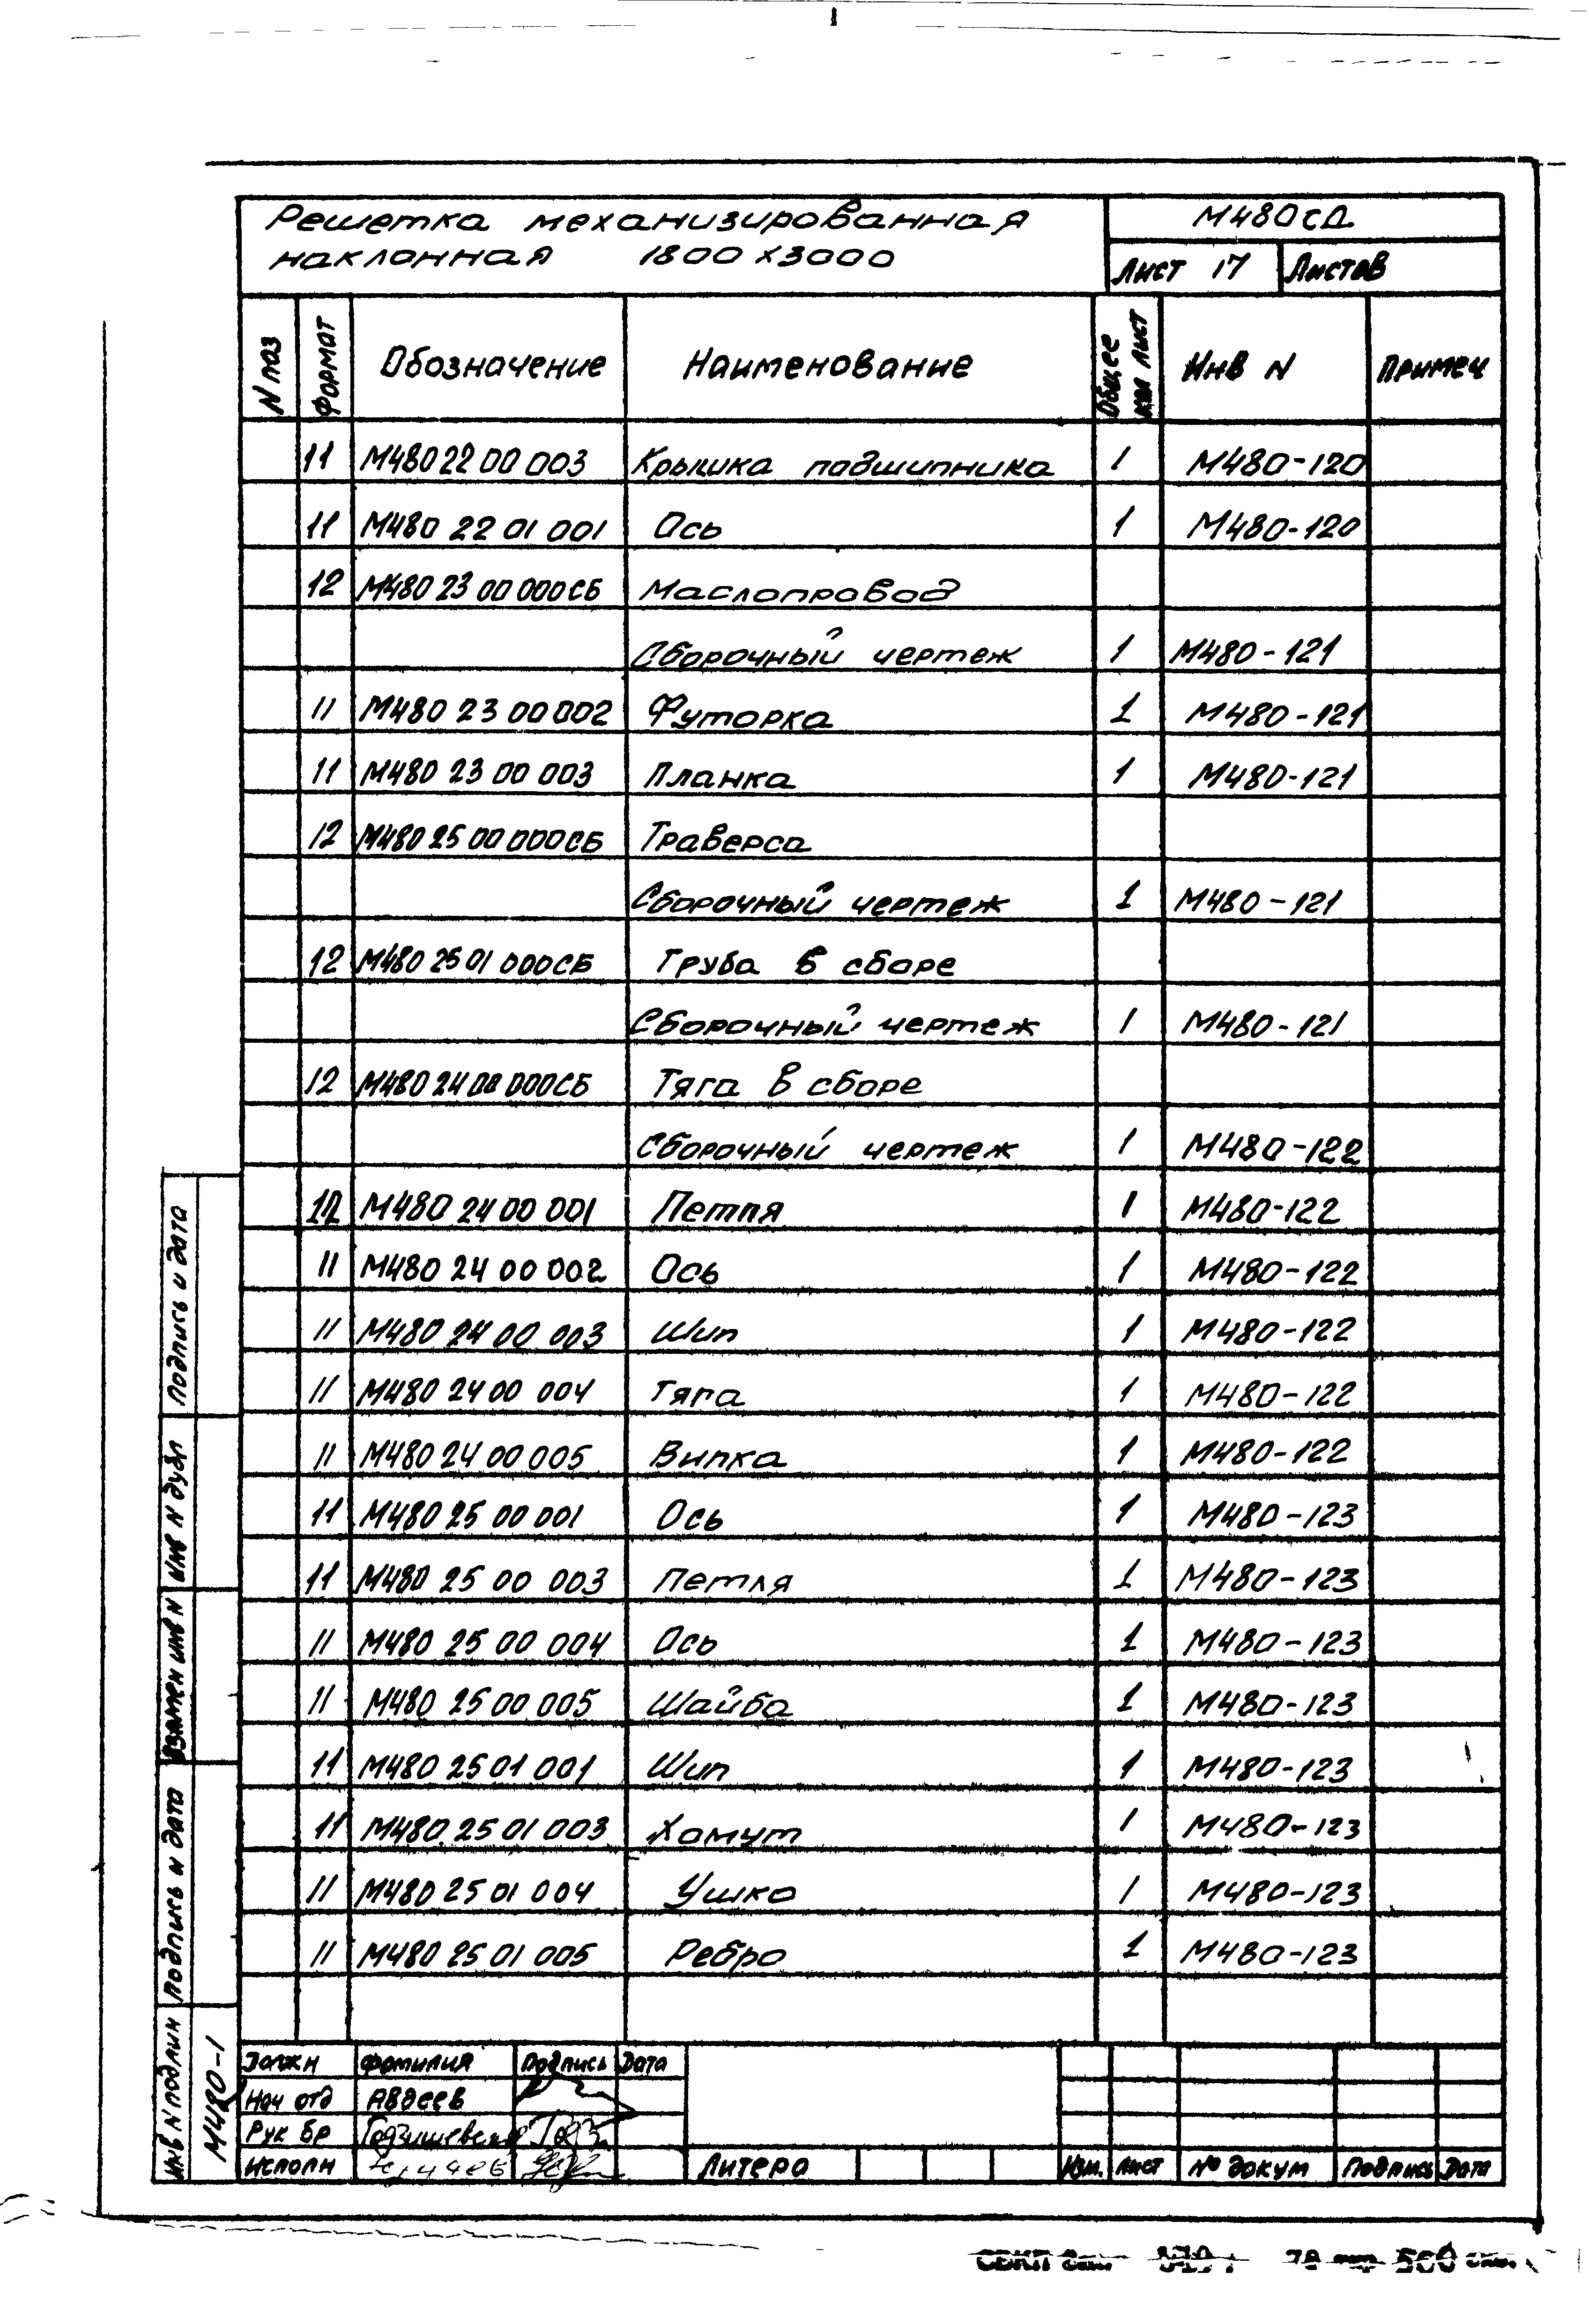 Решетка механизированная М480СД
наклонная 1800х3000 Лист 17 Листов
N поз Формат Обозначение Наименование Общее кол лист Инв N Примеч
11 М480 22 00 003 Крышка подшипника 1 М480-120
11 М480 22 01 001 Ось 1 М480-120
12 М480 23 00 000СБ Маслопровод
Сборочный чертеж 1 М480-121
11 М480 23 00 002 Футорка 1 М480-121
11 М480 23 00 003 Планка 1 М480-121
12 М480 25 00 000СБ Траверса
Сборочный чертеж 1 М480-121
12 М480 25 01 000СБ Труба в сборе
Сборочный чертеж 1 М480-121
12 М480 24 00 000СБ Тяга в сборе
Сборочный чертеж 1 М480-122
12 М480 24 00 001 Петля 1 М480-122
11 М480 24 00 002 Ось 1 М480-122
11 М480 24 00 003 Шип 1 М480-122
11 М480 24 00 004 Тяга 1 М480-122
11 М480 24 00 005 Вилка 1 М480-122
11 М480 25 00 001 Ось 1 М480-123
11 М480 25 00 003 Петля 1 М480-123
11 М480 25 00 004 Ось 1 М480-123
11 М480 25 00 005 Шайба 1 М480-123
11 М480 25 01 001 Шип 1 М480-123
11 М480 25 01 003 Хомут 1 М480-123
11 М480 25 01 004 Ушко 1 М480-123
11 М480 25 01 005 Ребро 1 М480-123
Подпись и дата
Инв N дубл
Взамен инв N
Подпись и дата
Инв N подлин М480-1
Должн Фамилия Подпись Дата
Нач отд Авдеев
Рук бр
Исполн Литера Изм. Лист № докум Подпись Дата
500